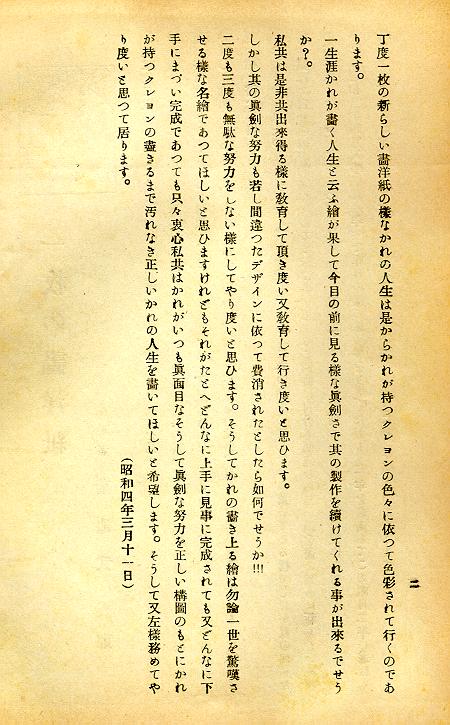 二
丁度一枚の新らしい畵洋紙の樣なかれの人生は是からかれが持つクレヨンの色々に依つて色彩されて行くのであ
ります。
一生涯かれが畵く人生と云ふ繪が果して今目の前に見る樣な眞劍さで其の製作を續けてくれる事が出來るでせう
か？。
私共は是非共出來得る樣に敎育して頂き度い又敎育して行き度いと思ひます。
しかし其の眞劍な努力も若し間違つたデザインに依つて費消されたとしたら如何でせうか!!!
二度も三度も無駄な努力をしない樣にしてやり度いと思ひます。そうしてかれの畵き上る繪は勿論一世を驚嘆さ
せる樣な名繪であつてほしいと思ひますけれどもそれがたとへどんなに上手に見事に完成されても又どんなに下
手にまづい完成であつても只々衷心私共はかれがいつも眞面目なそうして眞劍な努力を正しい構圖のもとにかれ
が持つクレヨンの盡きるまで汚れなき正しいかれの人生を畵いてほしいと希望します。そうして又左樣務めてや
り度いと思つて居ります。
（昭和四年三月十一日）